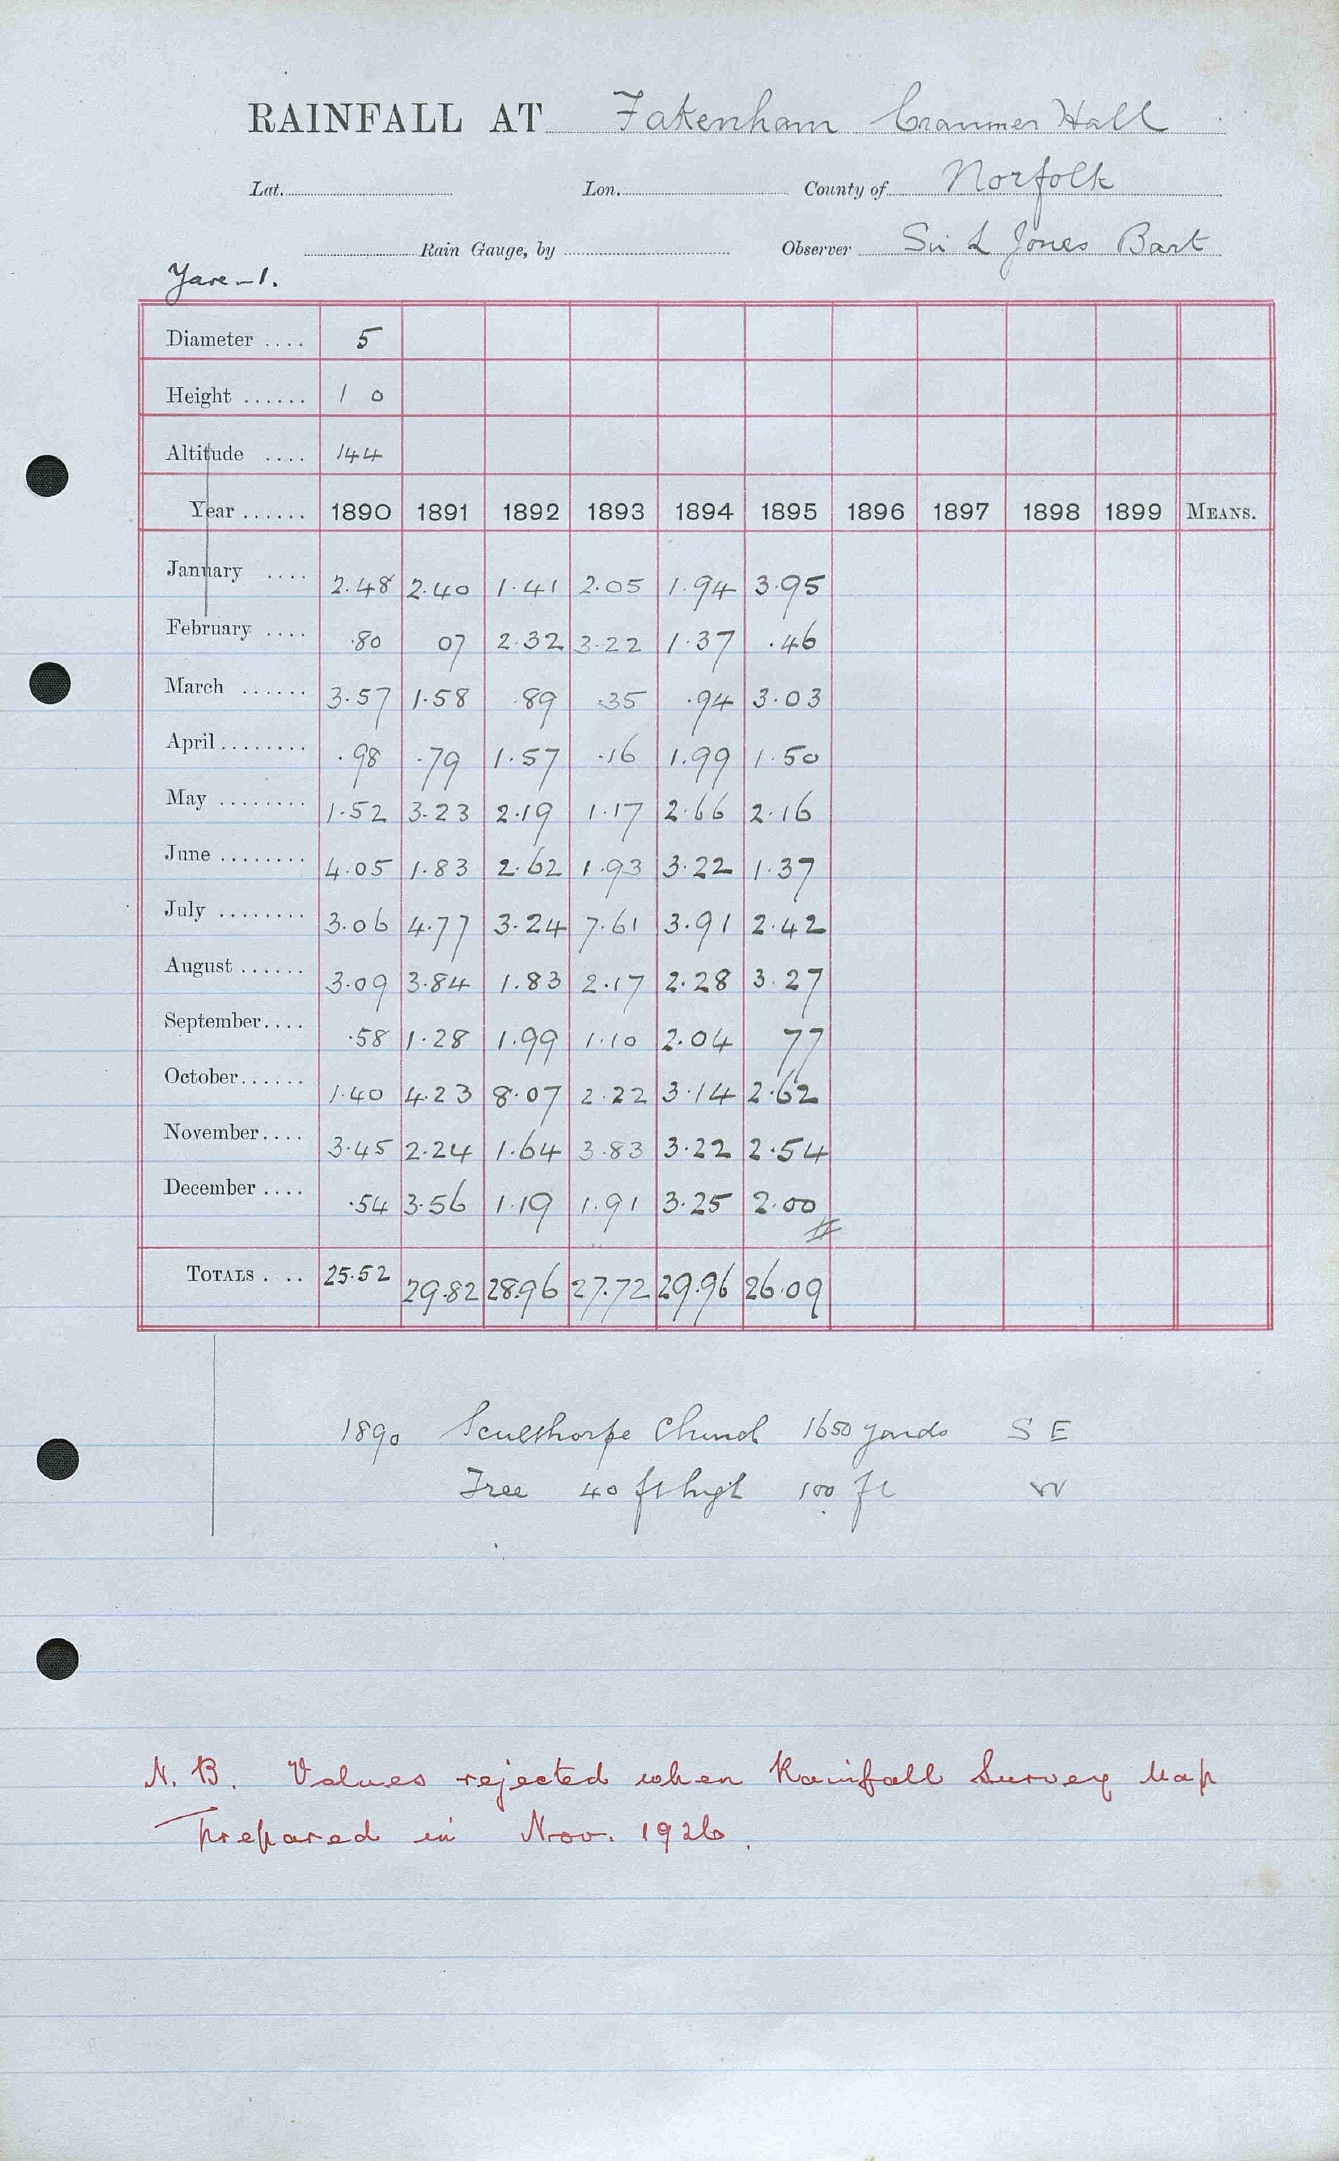 RAINFALL AT Fakenham Cranmer Hall
Lat. Lon. County of Norfolk
Rain Gauge, by Observer Sir L Jones Bart
Yare-1.
Diameter .... 5
Height ...... 1 0
Altitude .... 144
Year ...... 1890 1891 1892 1893 1894 1895 1896 1897 1898 1899 MEANS.
January .... 2.48 2.40 1.41 2.05 1.94 3.95
February .... .80 07 2.32 3.22 1.37 .46
March ...... 3.57 1.58 .89 .35 .94 3.03
April ........ .98 .79 1.57 .16 1.99 1.50
May ........ 1.52 3.23 2.19 1.17 2.66 2.16
June ........ 4.05 1.83 2.62 1.93 3.22 1.37
July ........ 3.06 4.77 3.24 7.61 3.91 2.42
August ...... 3.09 3.84 1.83 2.17 2.28 3.27
September.... .58 1.28 1.99 1.10 2.04 77
October...... 1.40 4.23 8.07 2.22 3.14 2.62
November.... 3.45 2.24 1.64 3.83 3.22 2.54
December .... .54 3.56 1.19 1.91 3.25 2.00
TOTALS .... 25.52 29.82 28.96 27.72 29.96 26.09
1890 Sculthorpe Church 1650 yards S E
Tree 40 ft high 100 ft W
N. B. Values rejected when Rainfall Survey Map
prepared in Nov. 1926.